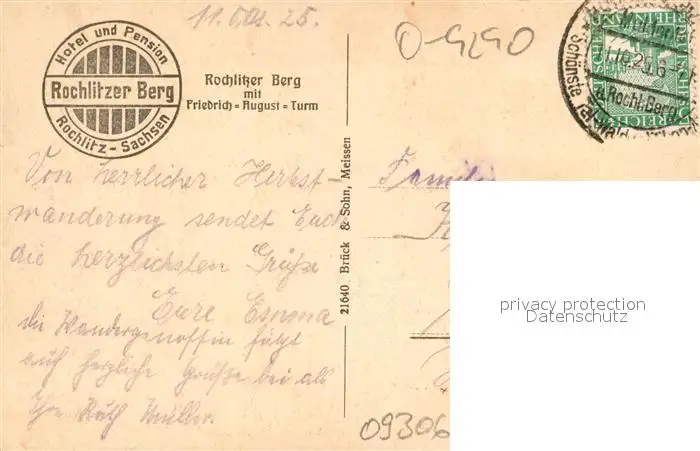 11. Okt. 25.
0-9290
Hotel und Pension
Rochlitzer Berg
Rochlitz - Sachsen
Rochlitzer Berg
mit
Friedrich = August = Turm
Von herrlicher Herbst-
wanderung sendet Euch
die herzlichsten Grüße
Eure Emma
die Wandergenossin fügt
auch herzliche Grüße bei als
Ihre Ruth Müller.
21640 Brück & Sohn, Meissen
RHEINLAND
DEUTSCHES REICH
Rochl. Berg
Schönste
Familie
privacy protection
Datenschutz
09306